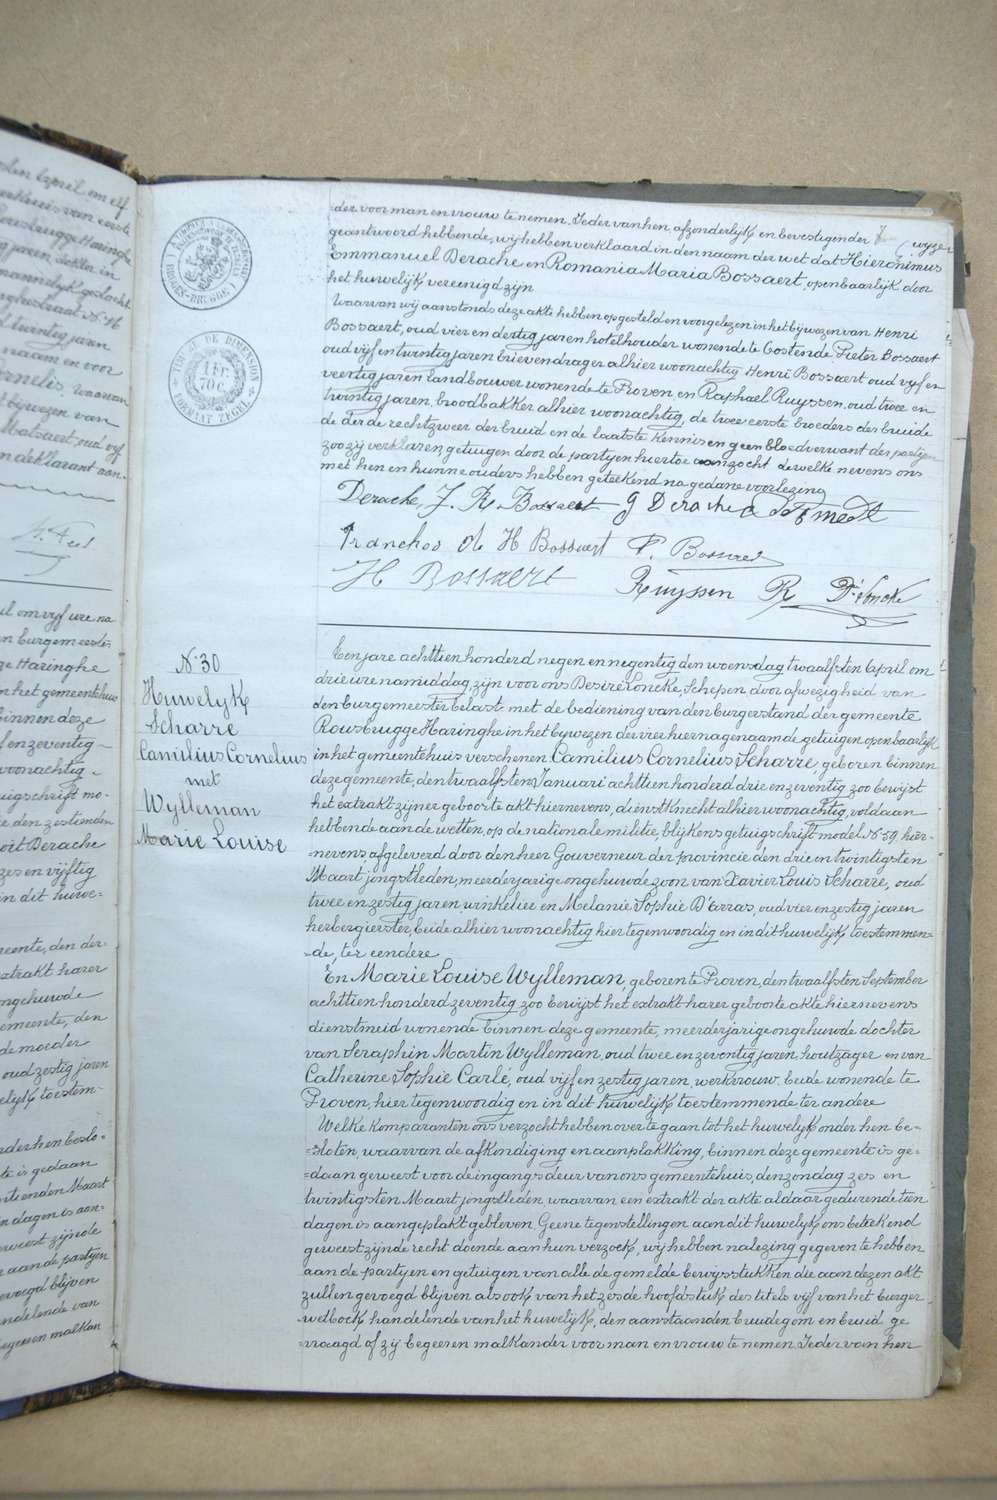 den April om elf
naam en voor
Cornelis, waarvan
bijwezen van
Matsaert, oud vyf
en deklarant aan-
vyf ure na
en burgemeeste-
ge Haringhe
n het gemeentehuis
binnen deze
en zeventig
woonachtig
uigschrift mo-
e den zestienden
oit Derache
zes en vijftig
in dit huwe-
meente, den der-
extrakt harer
ongehuwde
emeente, den
de moeder
oud zestig jaren
elyk toestem-
nder hen beslo-
te is gedaan
tienden Maart
n dagen is aan-
weest zijnde
aan de partyen
evoegd blijven
ndelende van
egeeren malkan
TIMBRE DE DIMENSION
1 fr.
70 c.
FORMAAT ZEGEL
BRUGES-BRUGGE
der voor man en vrouw te nemen. Ieder van hen, afzonderlijk en bevestigender wyze
geantwoord hebbende, wij hebben verklaard in den naam der wet dat Hieronimus
Emmanuel Derache en Romania Maria Bossaert, openbaarlijk door
het huwelijk vereenigd zijn
Waarvan wij aanstonds deze akte hebben opgesteld en voorgelezen in het bijwezen van Henri
Bossaert, oud vier en dertig jaren hotelhouder wonende te Oostende, Pieter Bossaert
oud vijf en twintig jaren brievendrager alhier woonachtig Henri Bossaert oud vijf en
veertig jaren landbouwer wonende te Proven, en Raphael Ruyssen, oud twee en
twintig jaren, broodbakker alhier woonachtig, de twee eerste broeders der bruide
de derde rechtzweer der bruid en de laatste kennis en geen bloedverwant der partijen
zoo zij verklaren getuigen door de partyen hiertoe aanzocht dewelke nevens ons
met hen en hunne ouders hebben geteekend na gedane voorlezing
Derache, J. R. Bossaert G Derache
H Bossaert P. Bossaert
H Bossaert Ruyssen R D. Loncke
N. 30
Huwelyk
Scharre
Camilius Cornelius
met
Wylleman
Marie Louise
Een jare achttien honderd negen en negentig den woensdag twaalfsten April om
drie ure namiddag, zijn voor ons Desiré Loncke, Schepen door afwezigheid van
den burgemeester belast met de bediening van den burgerstand der gemeente
Rousbrugge Haringhe in het bywezen der vier hiernagenaamde getuigen openbaarlijk
in het gemeentehuis verschenen Camilius Cornelius Scharre, geboren binnen
deze gemeente, den twaalfsten Januari achttien honderd drie en zeventig zoo bewijst
het extrakt zijner geboorte akt hiernevens, dienstknecht alhier woonachtig, voldaan
hebbende aan de wetten, op de nationale militie, blijkens getuigschrift model N. 59, hier-
=nevens, afgeleverd door den heer Gouverneur der provincie den drie en twintigsten
Maart jongstleden, meerderjarige ongehuwde zoon van Xavier Louis Scharre, oud
twee en zestig jaren, winkelier en Melanie Sophie D'arras, oud vier en zestig jaren
herbergierster, beide alhier woonachtig hier tegenwoordig en in dit huwelijk toestemmen=
=de, ter eendere
En Marie Louise Wylleman, geboren te Proven, den twaalfsten September
achttien honderd zeventig zoo bewijst het extrakt harer geboorte akte hiernevens
dienstmeid wonende binnen deze gemeente, meerderjarige ongehuwde dochter
van Seraphin Martin Wylleman, oud twee en zeventig jaren houtzager en van
Catherine Sophie Carlé, oud vijf en zestig jaren, werkvrouw. beide wonende te
Proven, hier tegenwoordig en in dit huwelijk toestemmende ter andere
Welke komparanten ons verzocht hebben over te gaan tot het huwelyk onder hen be=
=sloten, waarvan de afkondiging en aanplakking, binnen deze gemeente is ge=
=daan geweest voor de ingangs deur van ons gemeentehuis, den zondag zes en
twintigsten Maart jongstleden waarvan een extrakt der akte aldaar gedurende tien
dagen is aangeplakt gebleven. Geene tegenstellingen aan dit huwelyk ons beteekend
geweest zijnde recht doende aan hun verzoek, wij hebben na lezing gegeven te hebben
aan de partyen en getuigen van alle de gemelde bewysstukken die aan dezen akt
zullen gevoegd blijven alsook van het zesde hoofdstuk des titels vijf van het burger-
=wetboek handelende van het huwelijk, den aanstaanden bruidegom en bruid ge
=vraagd of zij begeeren malkander voor man en vrouw te nemen. Ieder van hen